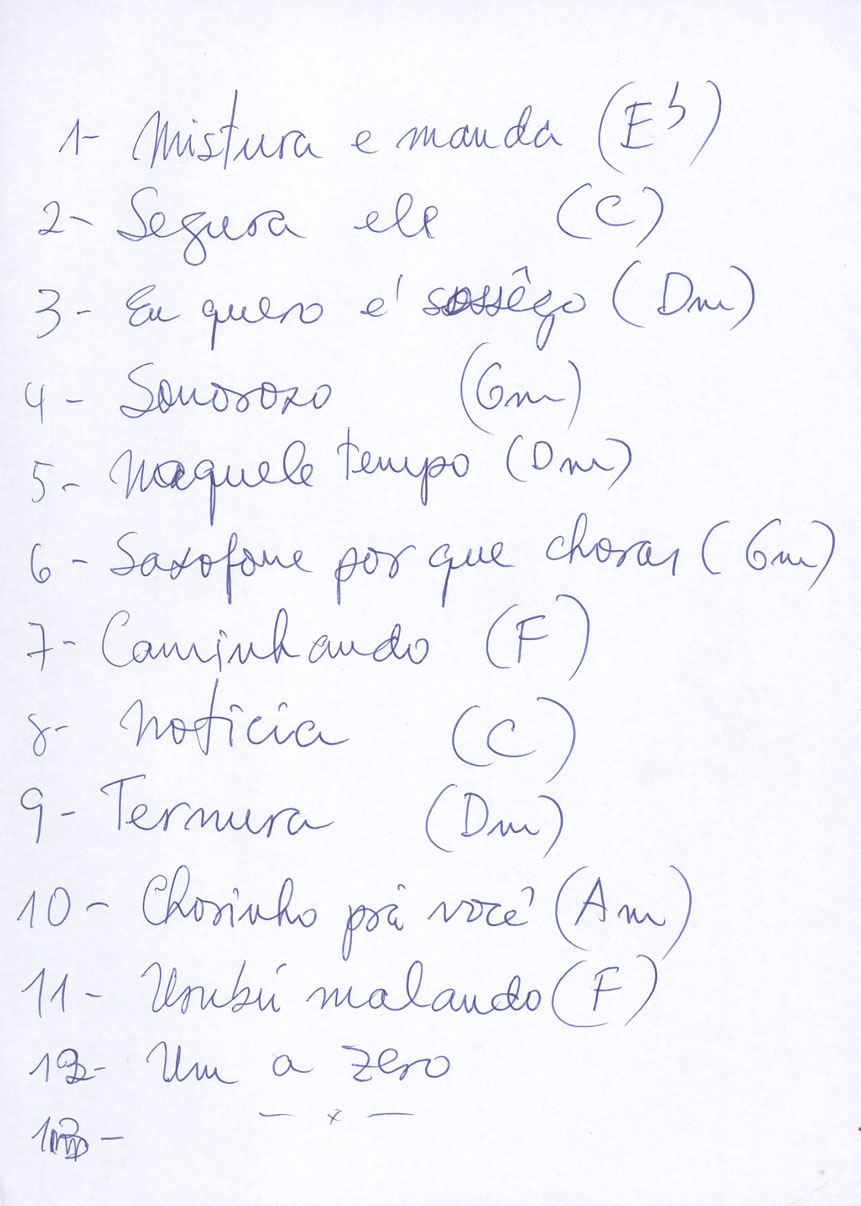 1- Mistura e manda (E♭)
2- Segura ele (C)
3- Eu quero é sossêgo (Dm)
4- Sonoroso (Gm)
5- Naquele tempo (Dm)
6- Saxofone por que choras (Gm)
7- Caminhando (F)
8- Noticia (C)
9- Ternura (Dm)
10- Chorinho prá você (Am)
11- Urubú malando (F)
12- Um a zero
— x —
13-